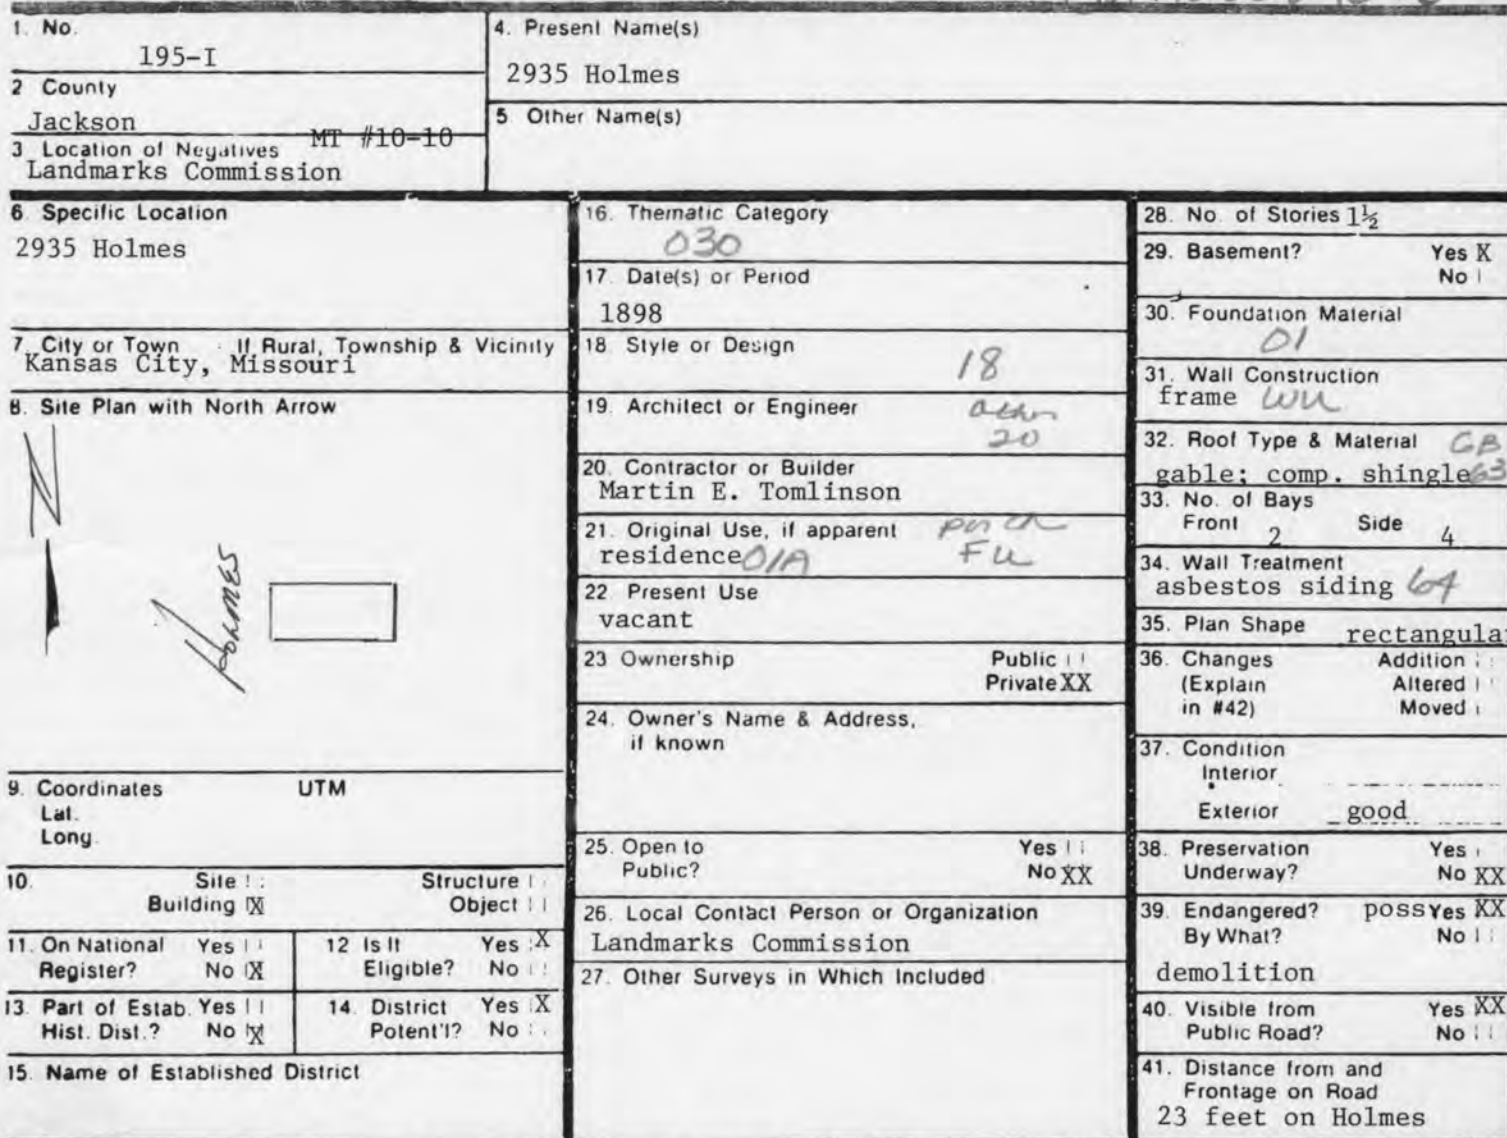 1. No.
195-I
2 County
Jackson
MT #10-10
3 Location of Negatives
Landmarks Commission
4. Present Name(s)
2935 Holmes
5 Other Name(s)
6. Specific Location
2935 Holmes
7 City or Town If Rural, Township & Vicinity
Kansas City, Missouri
8. Site Plan with North Arrow
N
HOLMES
9. Coordinates UTM
Lat.
Long.
10. Site Structure
Building X Object
11. On National Yes
Register? No X
12 Is It Yes X
Eligible? No
13. Part of Estab. Yes
Hist. Dist.? No X
14. District Yes X
Potent'l? No
15. Name of Established District
16. Thematic Category
030
17. Date(s) or Period
1898
18. Style or Design
18
19. Architect or Engineer
20
20. Contractor or Builder
Martin E. Tomlinson
21. Original Use, if apparent porch
residence 01A FU
22 Present Use
vacant
23 Ownership Public
Private XX
24. Owner's Name & Address,
if known
25. Open to Yes
Public? No XX
26. Local Contact Person or Organization
Landmarks Commission
27. Other Surveys in Which Included
28. No. of Stories 1½
29. Basement? Yes X
No
30. Foundation Material
01
31. Wall Construction
frame WU
32. Roof Type & Material GB
gable; comp. shingle 63
33. No. of Bays
Front 2 Side 4
34. Wall Treatment
asbestos siding 64
35. Plan Shape rectangular
36. Changes Addition
(Explain Altered
in #42) Moved
37. Condition
Interior
Exterior good
38. Preservation Yes
Underway? No XX
39. Endangered? poss Yes XX
By What? No
demolition
40. Visible from Yes XX
Public Road? No
41. Distance from and
Frontage on Road
23 feet on Holmes